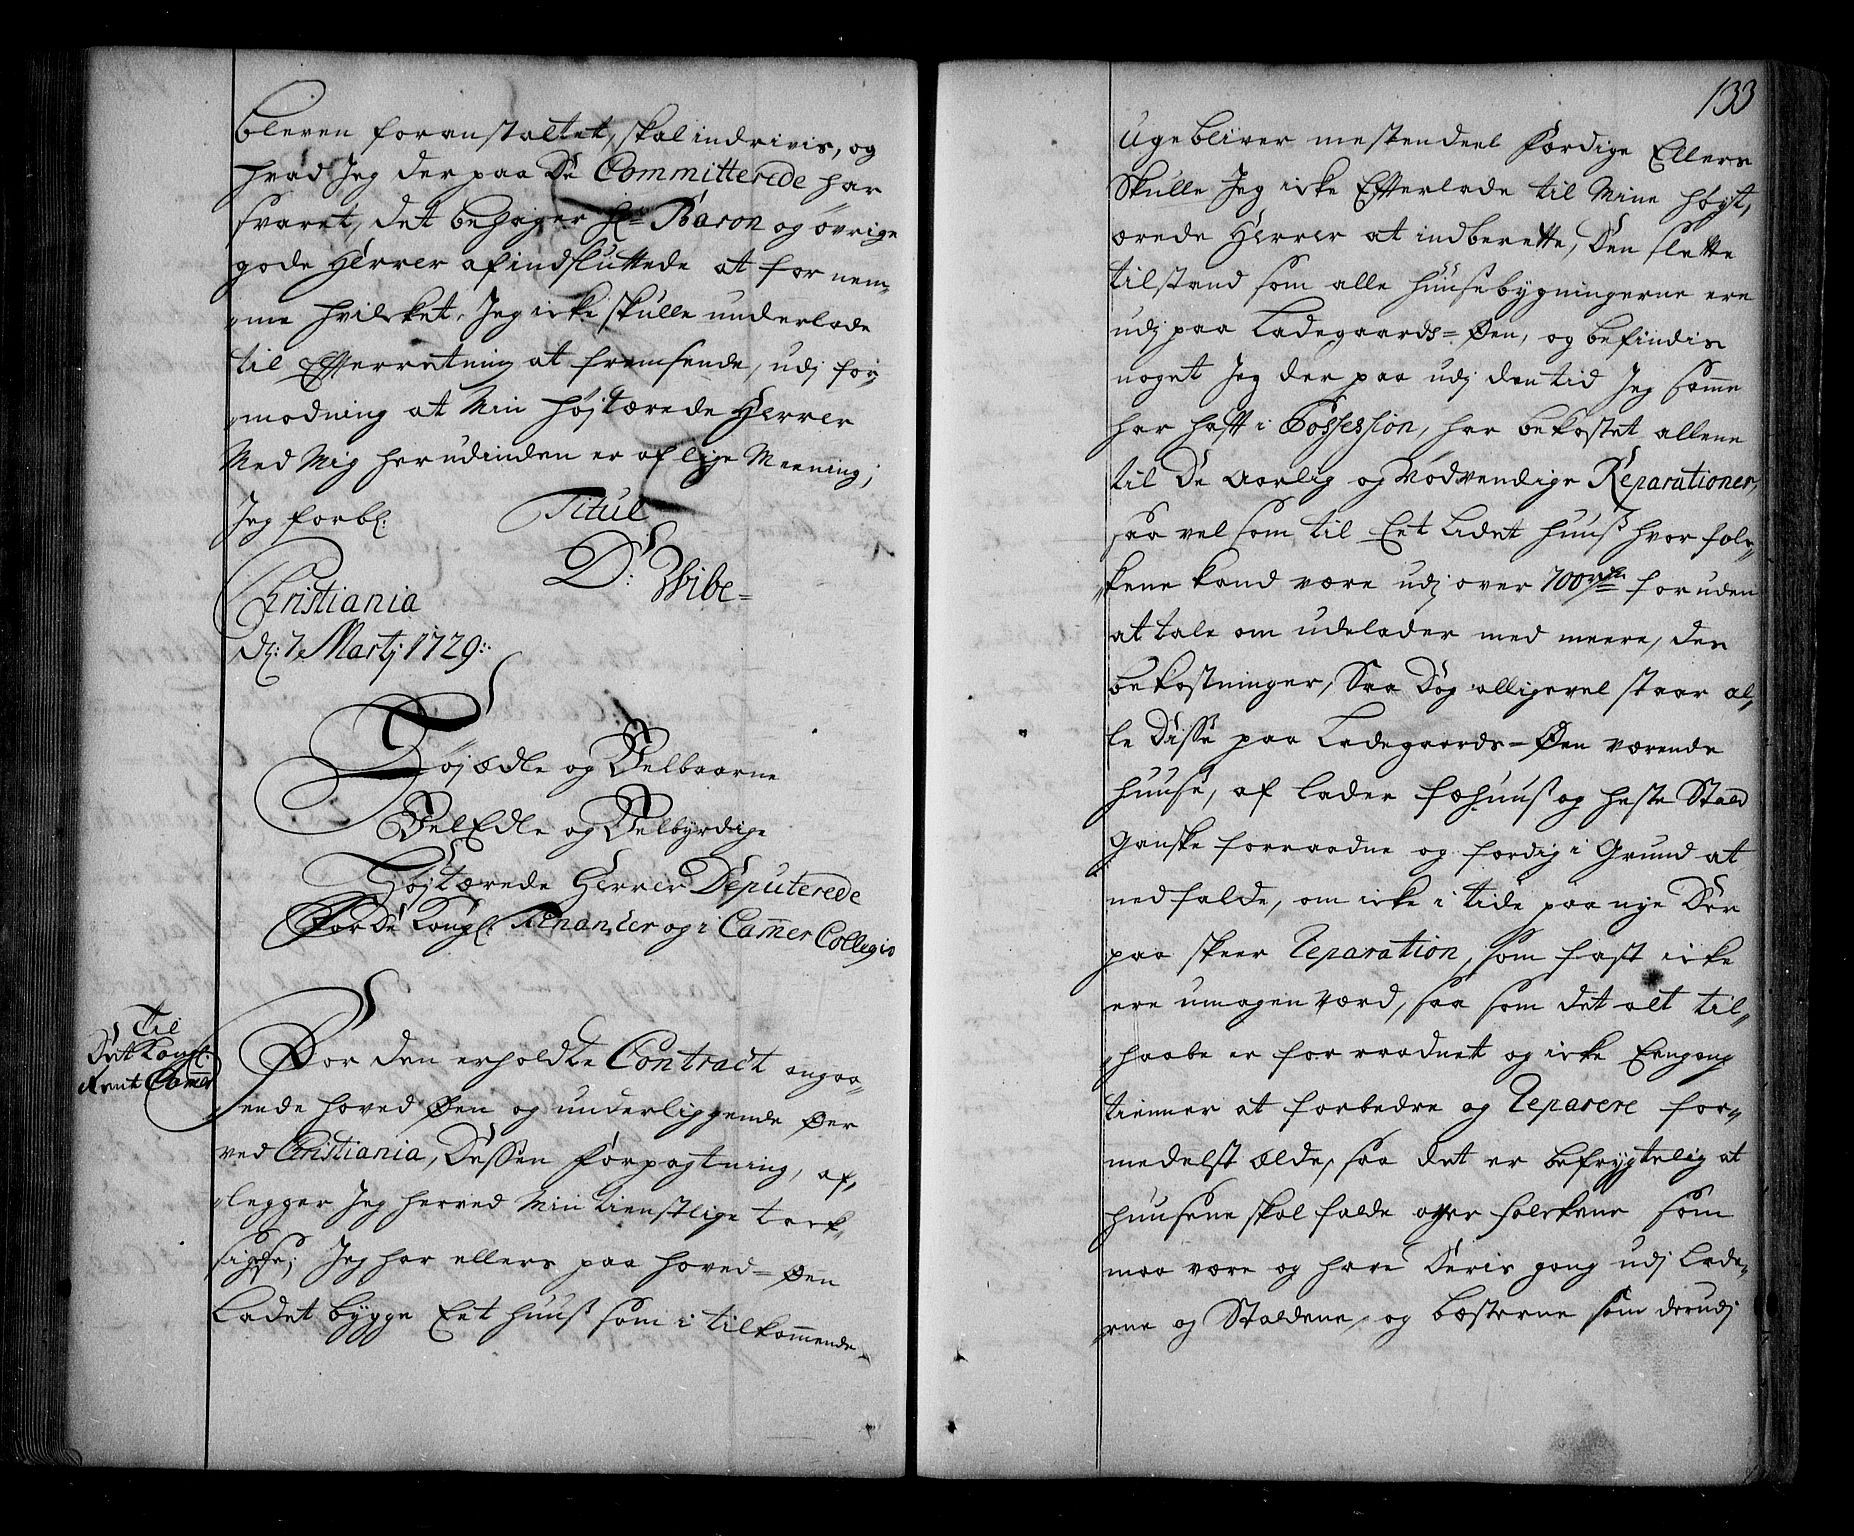 bleven foranstaltet, skal indrivis, og
hvad Jeg der paa De Committerede har
svaret, det behager Hr: Baron og øvrige
gode Herrer af indsluttede at fornem„
„me hvilcket, Jeg icke skulle underlade
til Efterretning at fremsende, udj for„
„modning at Min højstærede Herrer
Med Mig herudinden er af lige Meening;
Jeg forbl:
Titul
D: Wibe=
Christiania
d: 7 Martj 1729:
Højædle og Velbaarne
VelEdle og Velbyrdige
Højstærede Herrer Deputerede
For De Kongl: Financer og i Cammer Collegio
Til
Det Kongl:
Rente Camer
For den erholdte Contract angaa„
„ende hoved Øen og underliggende Øer
ved Christiania, Dessen forpagtning, af„
„legger Jeg herved Min tienstlige tack„
sigelse; Jeg har ellers paa hoved=Øen
Ladet bygge Eet huus som i tilkommende
133
Uge bliver mestendeel færdige Ellers
Skulle Jeg icke Efterlade til Mine høyst„
ærede Herrer at indberette, Den slette
tilstand som alle huusebygningerne ere
udj paa Ladegaards=Øen, og befindis
noget Jeg der paa udj den tid Jeg samme
har hafft i Possession, har bekostet allene
til De aarlig og Nødvendige Reparationer,
saa vel som til Eet Lidet huus hvor fol„
„kene kand være udj over 700 rdr foruden
at tale om udelader med meere, den
bekostninger, Saa Dog alligevel staar al„
le Disse paa Ladegaards=Øen værende
huuse, af lader fæhuus og heste Stald
Ganske forraadne og færdig i Grund at
nedfalde, om icke i tide paa nye Der
paa skeer Reparation, som fast icke
ere umagen værd, saa som det alt til„
„haabe er forraadnet og icke Engang
tienner at forbedre og Reparere for„
medelst ælde, saa det er befrygtelig at
huusene skal falde over folckene som
maa være og have Deris gang udj Lade„
„rne og Staldene, og bæsterne som derudj